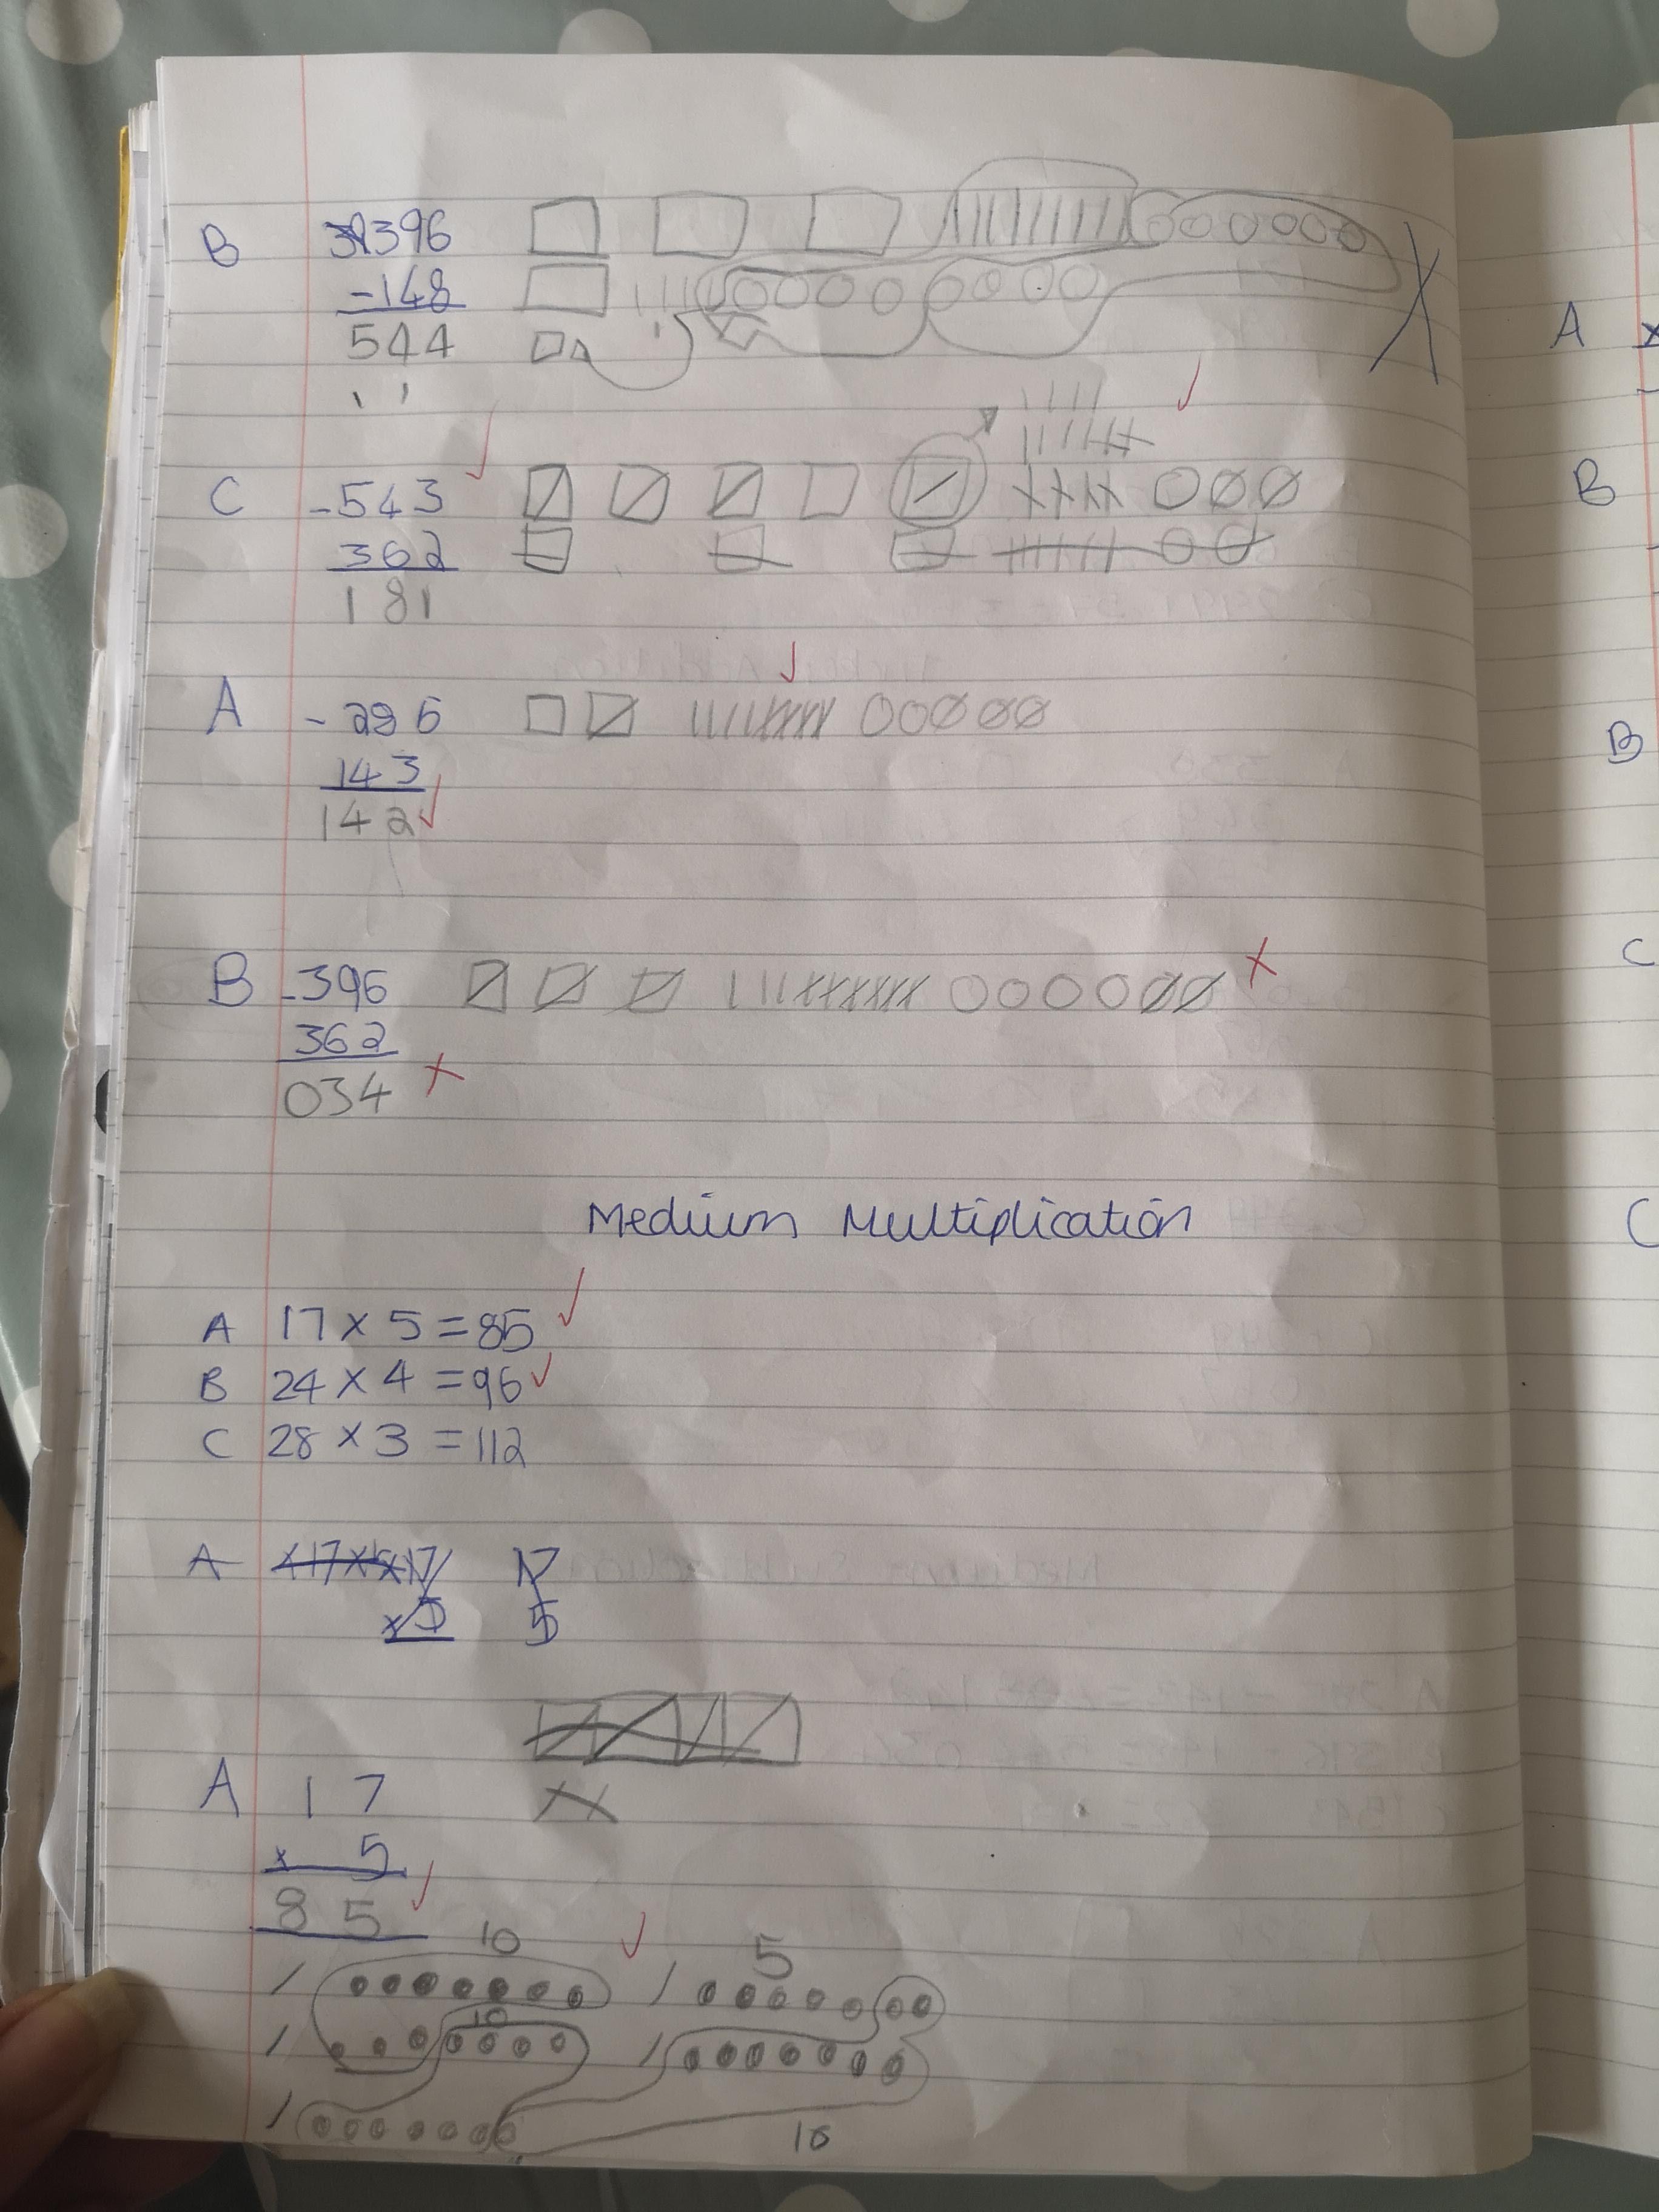 B 396
-148
544
C -543
362
181
A -286
143
142
B -396
362
034
Medium Multiplication
A 17 x 5 = 85
B 24 x 4 = 96
C 28 x 3 = 112
A 17
5
A 17
x 5
85
10 5
10
10
A
B
B
C
C